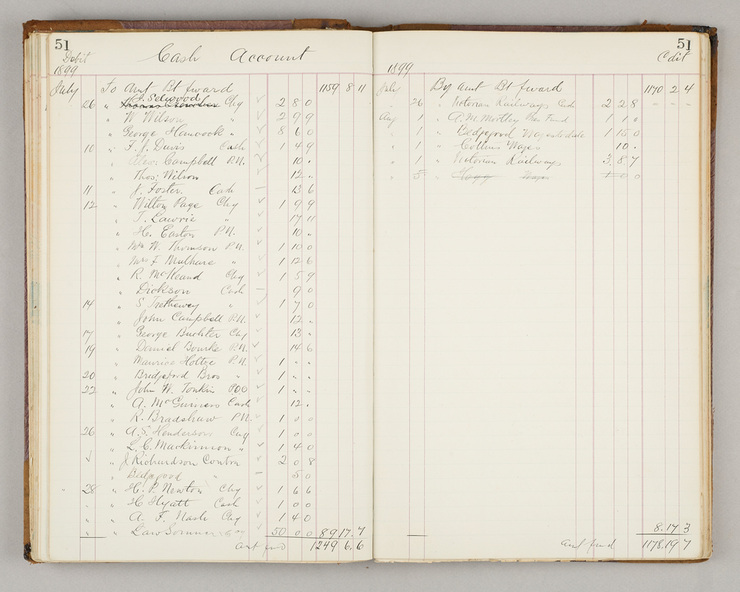 51
Debit
Cash Account
1899
July To Amt Bt fward 1159 8 11
26 " J. Selwood Chq 2 8 0
" W. Wilson " 2 9 9
" George Hancock " 8 6 0
10 " F. J. Davis Cash 1 4 9
" Campbell P.N. 10 "
" Thos. Wilson 12 "
11 " J. Foster Cash 13 6
12 " Wilton Page Chq 1 9 9
" T. Lawrie " 17 11
" H. Easton P.N. 10 "
" Mrs W. Thomson P.N. 1 10 0
" Mrs F. Mulhare " 1 12 6
" R. McKeand Chq 1 5 9
" Dickson Cash 9 0
14 " S. Trethewey " 1 7 0
" John Campbell P.N. 12 "
17 " George Buchter Chq 13 "
19 " Daniel Bourke P.N. 14 6
" Maurice Holtze P.N. 1 " "
20 " Bridgford Bros " 1 " "
22 " John W. Tonkin POO 1 " "
" A. McGuiness Cash 12 "
" R. Bradshaw P.N. 1 0 0
26 " A. S. Henderson Chq 1 0 0
" L. C. Mackinnon " 1 4 0
" J. Richardson 2 0 8
" Bedgegood " 5 0
28 " H. P. Newton Chq 1 6 6
" H Hyatt Cash 1 0 0
" A. F. Nash Chq 1 4 0
" Law 50 0 0 89 17 7
Amt fwd 1249 6 6
51
Credit
1899
July By Amt Bt fward 1170 2 4
26 " Victorian Railways Cash 2 2 8
Aug 1 " A. M. Fund 1 1 0
1 " Bedgegood Wages 1 15 0
1 " Collins Wages 10 "
1 " Victorian Railways 3 8 7
5 " Wages 1 0 0
8 17 3
Amt fwd 1178 19 7